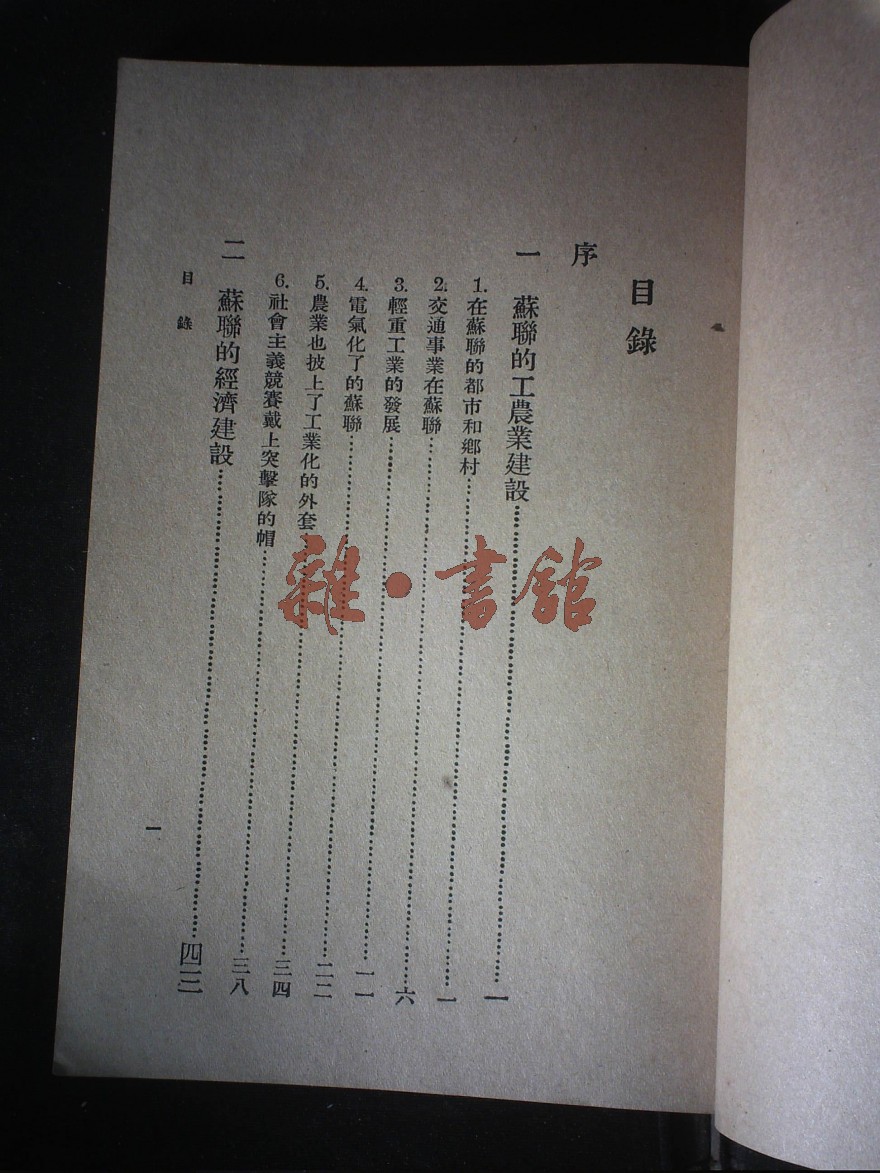 目錄
序
一 蘇聯的工農業建設……一
1. 在蘇聯的都市和鄉村……一
2. 交通事業在蘇聯……六
3. 輕重工業的發展……一一
4. 電氣化了的蘇聯……二二
5. 農業也披上了工業化的外套……三四
6. 社會主義競賽戴上突擊隊的帽……三八
二 蘇聯的經濟建設……四三
目錄
一
雜·書館